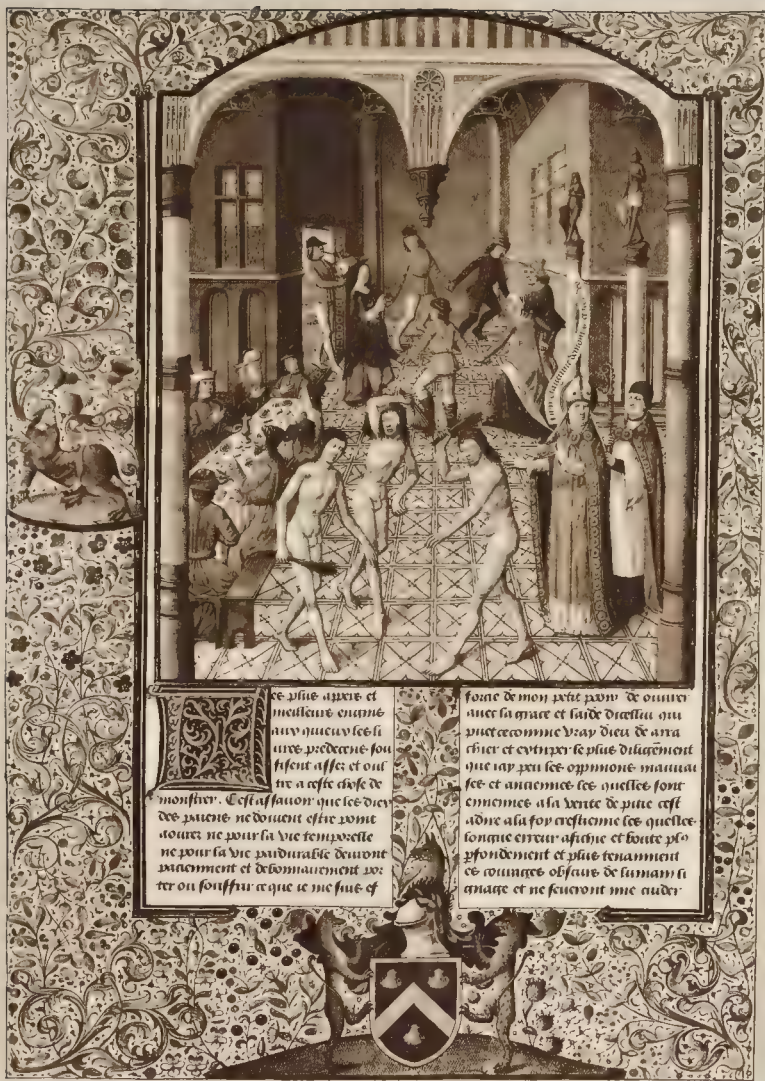 Les plus apers et
meilleurs engins
aux quieux les li
ures predecens sou
fisent assez et oul
tre a ceste chose de
monstrer. Cest assauoir que les diex
des paiens ne doiuent estre point
aourez ne pour la vie temporelle
ne pour la vie pardurable deuront
paciemment et debonnairement por
ter ou souffrir ce que ie me suis ef
forcie de mon petit pouoir de ouurer
auec la grace et laide dicellui qui
puet ce comme vray dieu de arra
chier et extirper le plus diligemment
que iay peu les oppinions mauuai
ses et anciennes les quelles sont
ennemies a la verite de pitie cest
adire a la foy crestienne les quelles
longue erreur afichie et boute plꝰ
pfondement et plus tenanment
es couraiges obscurs de lumain li
gnage et ne seuront mie cuider